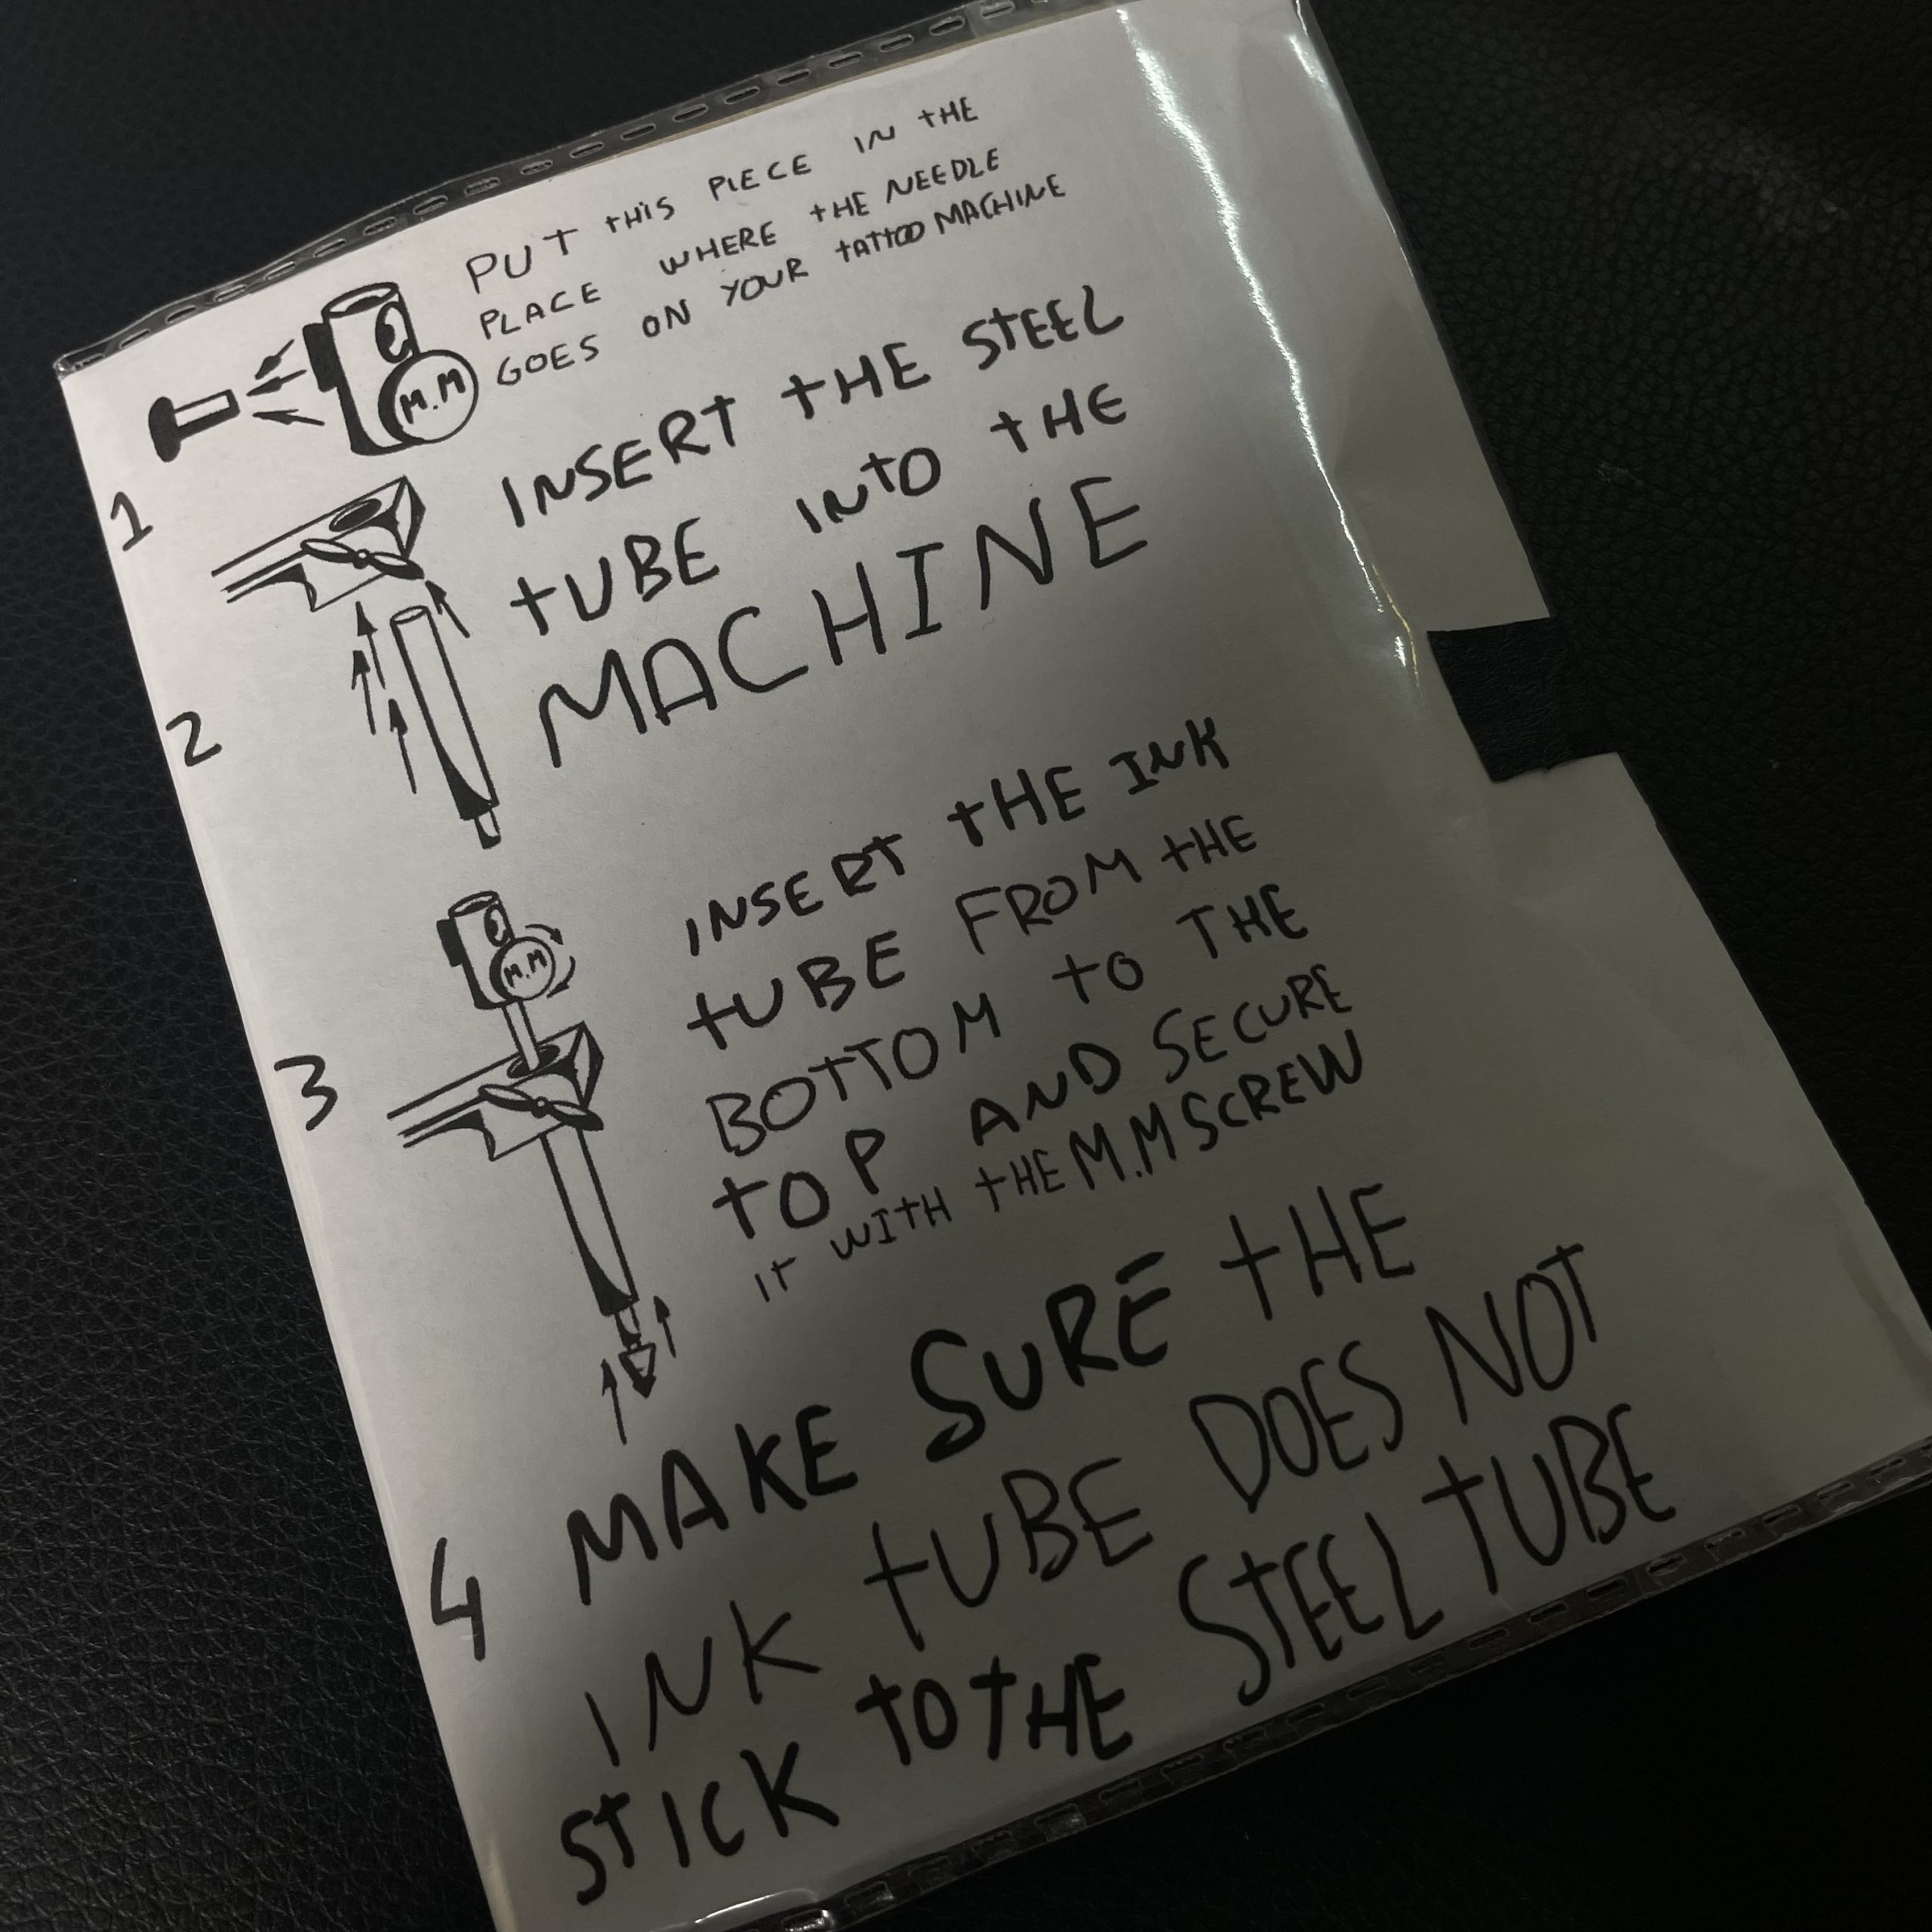 PUT THIS PIECE IN THE
PLACE WHERE THE NEEDLE
GOES ON YOUR TATTOO MACHINE
M.M
1
INSERT THE STEEL
TUBE INTO THE
MACHINE
2
INSERT THE INK
TUBE FROM THE
BOTTOM TO THE
TOP AND SECURE
IT WITH THE M.M SCREW
M.M
3
MAKE SURE THE
INK TUBE DOES NOT
STICK TO THE STEEL TUBE
4